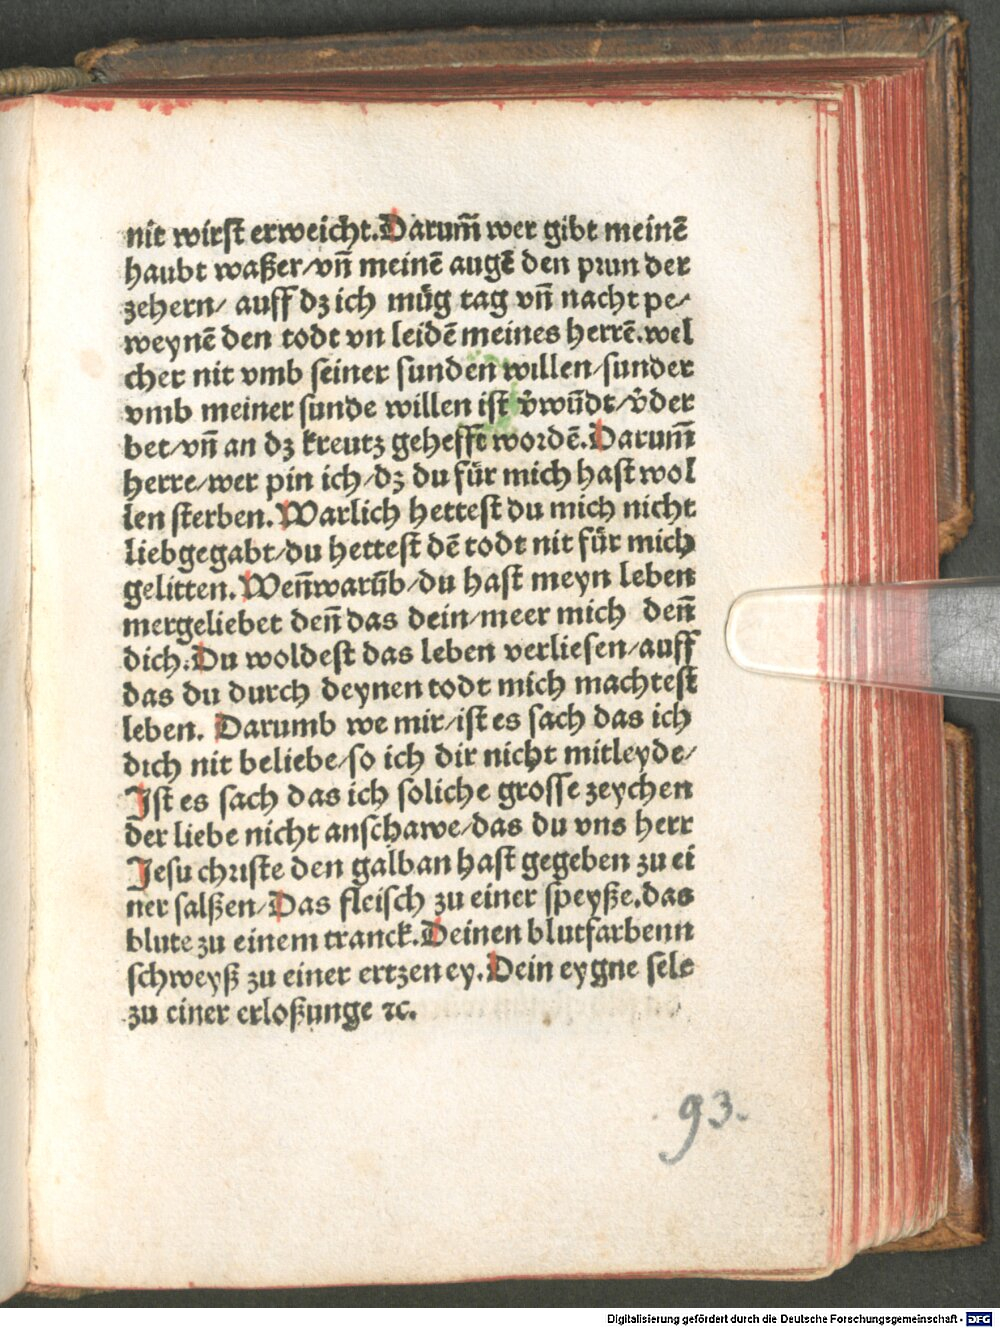 nit wirst erweicht. Darum̄ wer gibt meinē
haubt waßer/vn̄ meinē augē den prun der
zehern/ auff dz ich mu̇g tag vn̄ nacht pe/
weynē den todt vn leidē meines herrē. wel
cher nit vmb seiner sunden willen/sunder
vmb meiner sunde willen ist v̾wūdt/v̾der
bet/vn̄ an dz kreutz gehefft wordē. Darum̄
herre/wer pin ich/dz du für mich hast wol
len sterben. Warlich hettest du mich nicht
liebgegabt/du hettest dē todt nit für mich
gelitten. Wen̄warūb/du hast meyn leben
mergeliebet den̄ das dein/meer mich den̄
dich. Du woldest das leben verliesen/auff
das du durch deynen todt mich machtest
leben. Darumb we mir/ist es sach das ich
dich nit beliebe/so ich dir nicht mitleyde/
Ist es sach das ich soliche grosse zeychen
der liebe nicht anschawe/das du vns herr
Jesu christe den galban hast gegeben zu ei
ner salßen/Das fleisch zu einer speyße. das
blute zu einem tranck. Deinen blutfarbenn
schweyß zu einer ertzeney. Dein eygne sele
zu einer erloßunge ⁊c.
93.
Digitalisierung gefördert durch die Deutsche Forschungsgemeinschaft - DFG